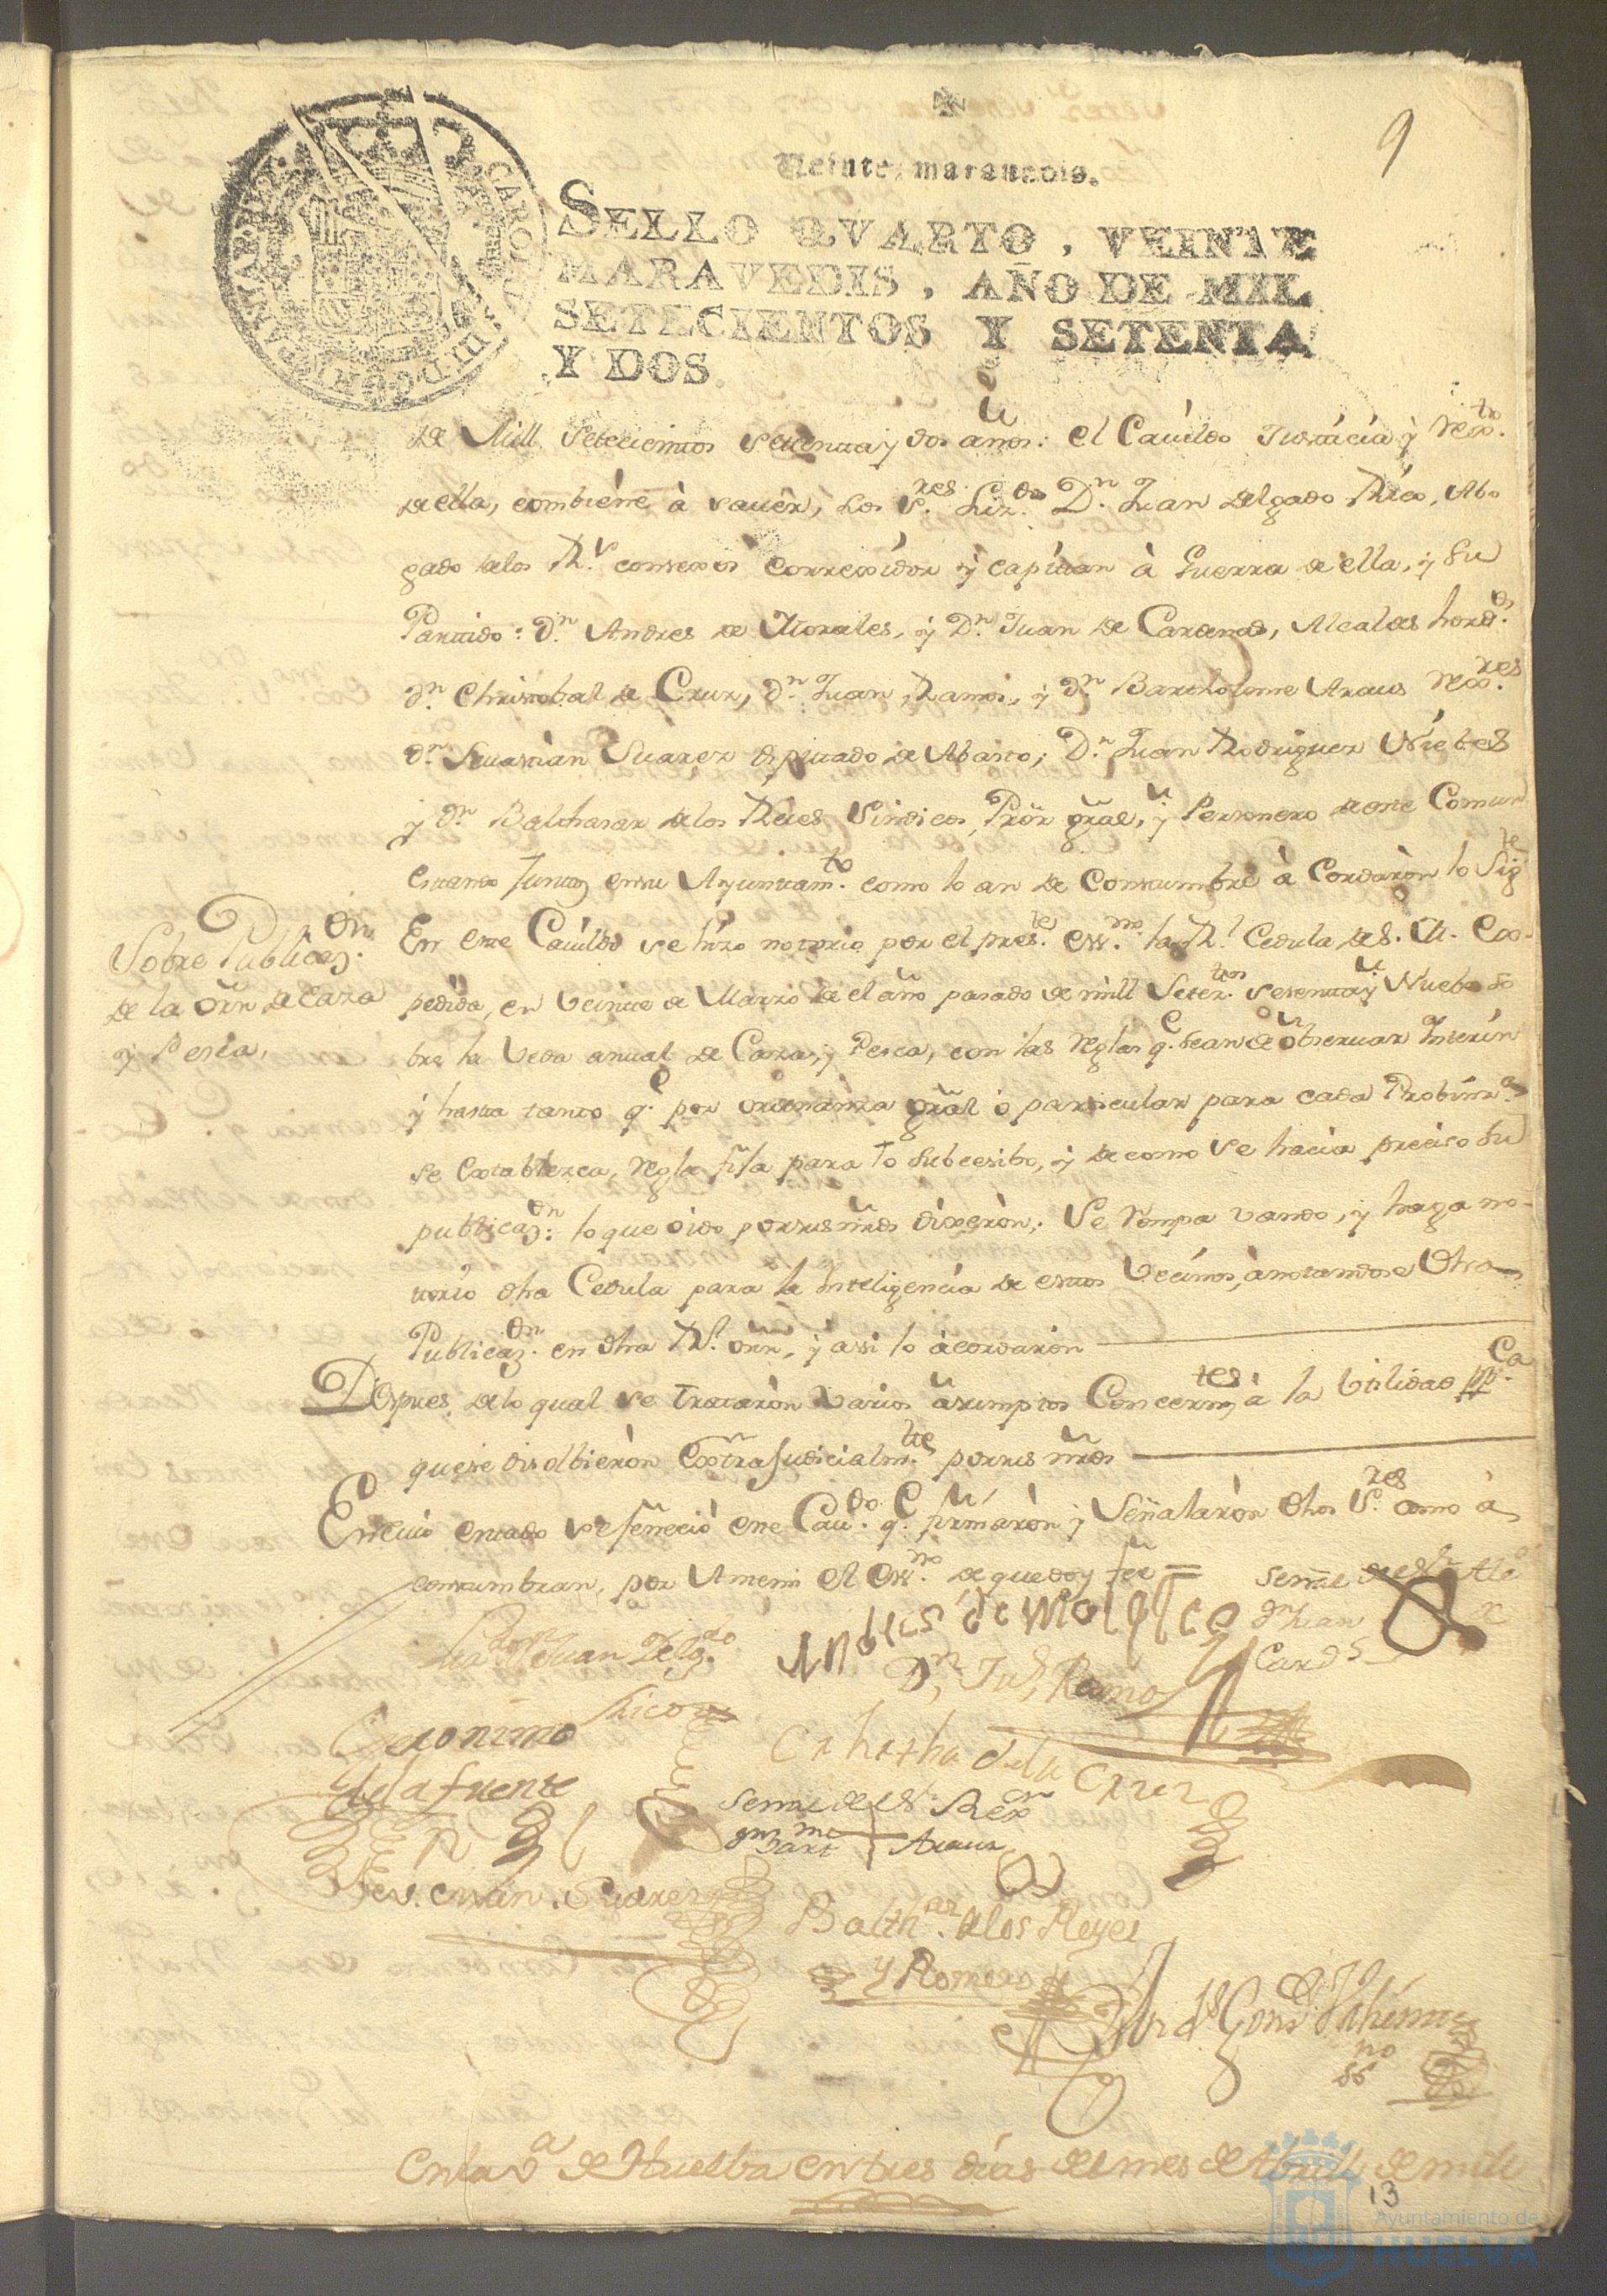 9
Veinte marauedis.
SELLO QVARTO, VEINTE
MARAVEDIS, AÑO DE MIL
SETECIENTOS Y SETENTA
Y DOS.
CAROLVS III D G
de Mill Setecientos setenta y dos años: el Cauildo Justicia y Rex.to
de ella, combiene à sauer, Los S.res Liz.do D.n Juan Delgado Rico, Abo
gado de los R.s consexos Correxidor y capitan à Guerra de ella, y su
Partido: D.n Andres de Morales, y D.n Juan de Cardenas, Alcaldes hord.os
d.n Christobal de Cruz, D.n Juan Ramos, y d.n Bartholome Araus Rex.res
d.n Seuastian Suarez diputado de Abasto; D.n Juan Rodriguez Niebes
y d.n Balthasar de los Reies Sindicos Prõr grãl, y Personero de este Comun
estando Juntos en su Ayuntam.to como lo an de Constumbre à Cordaròn lo Sig.te
Sobre Publicaz.on
de la Orñ de Caza
y Pesca.
En este Cauildo se hizo notorio por el pres.te ess.no la R.l Cedula de S. M. Ex-
pedida, en Veinte de Marzo de el año pasado de mill Setez.tos sesenta y Nuebe so
bre la Veda anual de Caza, y Pesca, con las reglas q.e sean de obseruar Interin
y hasta tanto q.e por ordenanza grãl ò particular para cada Probinz.a
se Extablezca, regla fixa para lo subcesibo, y de como se hacia preciso su
publicaz.on: lo que oido por sus mrds dixeròn: Se rompa vando, y haga no-
torio dha Cedula para la Inteligencia de estos Vecinos, anotandose dha
Publicaz.on en dha R.l orñ, y assi lo àcordaròn
Despues de lo qual se trataròn Varios asumptos Concern.tes à la Vtilidad pp.ca
que se disolbieròn Extrajudicialm.te por sus mrds
En cuio estado se feneciò este Cau.do q.e firmaròn y Señalaròn dhos S.res como à
constumbran, por Ante mi el Ess.no de que doy fee =
Señal de el s.r Alc.e
d.n Juan de
Card.s
Liz.do D.n Juan Delg.do
Rico
Andres de Morales
D.n Juº Ramos
Geronimo
de la fuente
Christhobal de la Cruz
Señal de el s.r Rex.or
d.n Bart.me Araus
Seuastian Suarez
Balth.ar de los Reyes
y Romero
no
ss
En la V.a de Huelba en tres dias de el mes de Abrill de mill
13
Ayuntamiento de
HUELVA